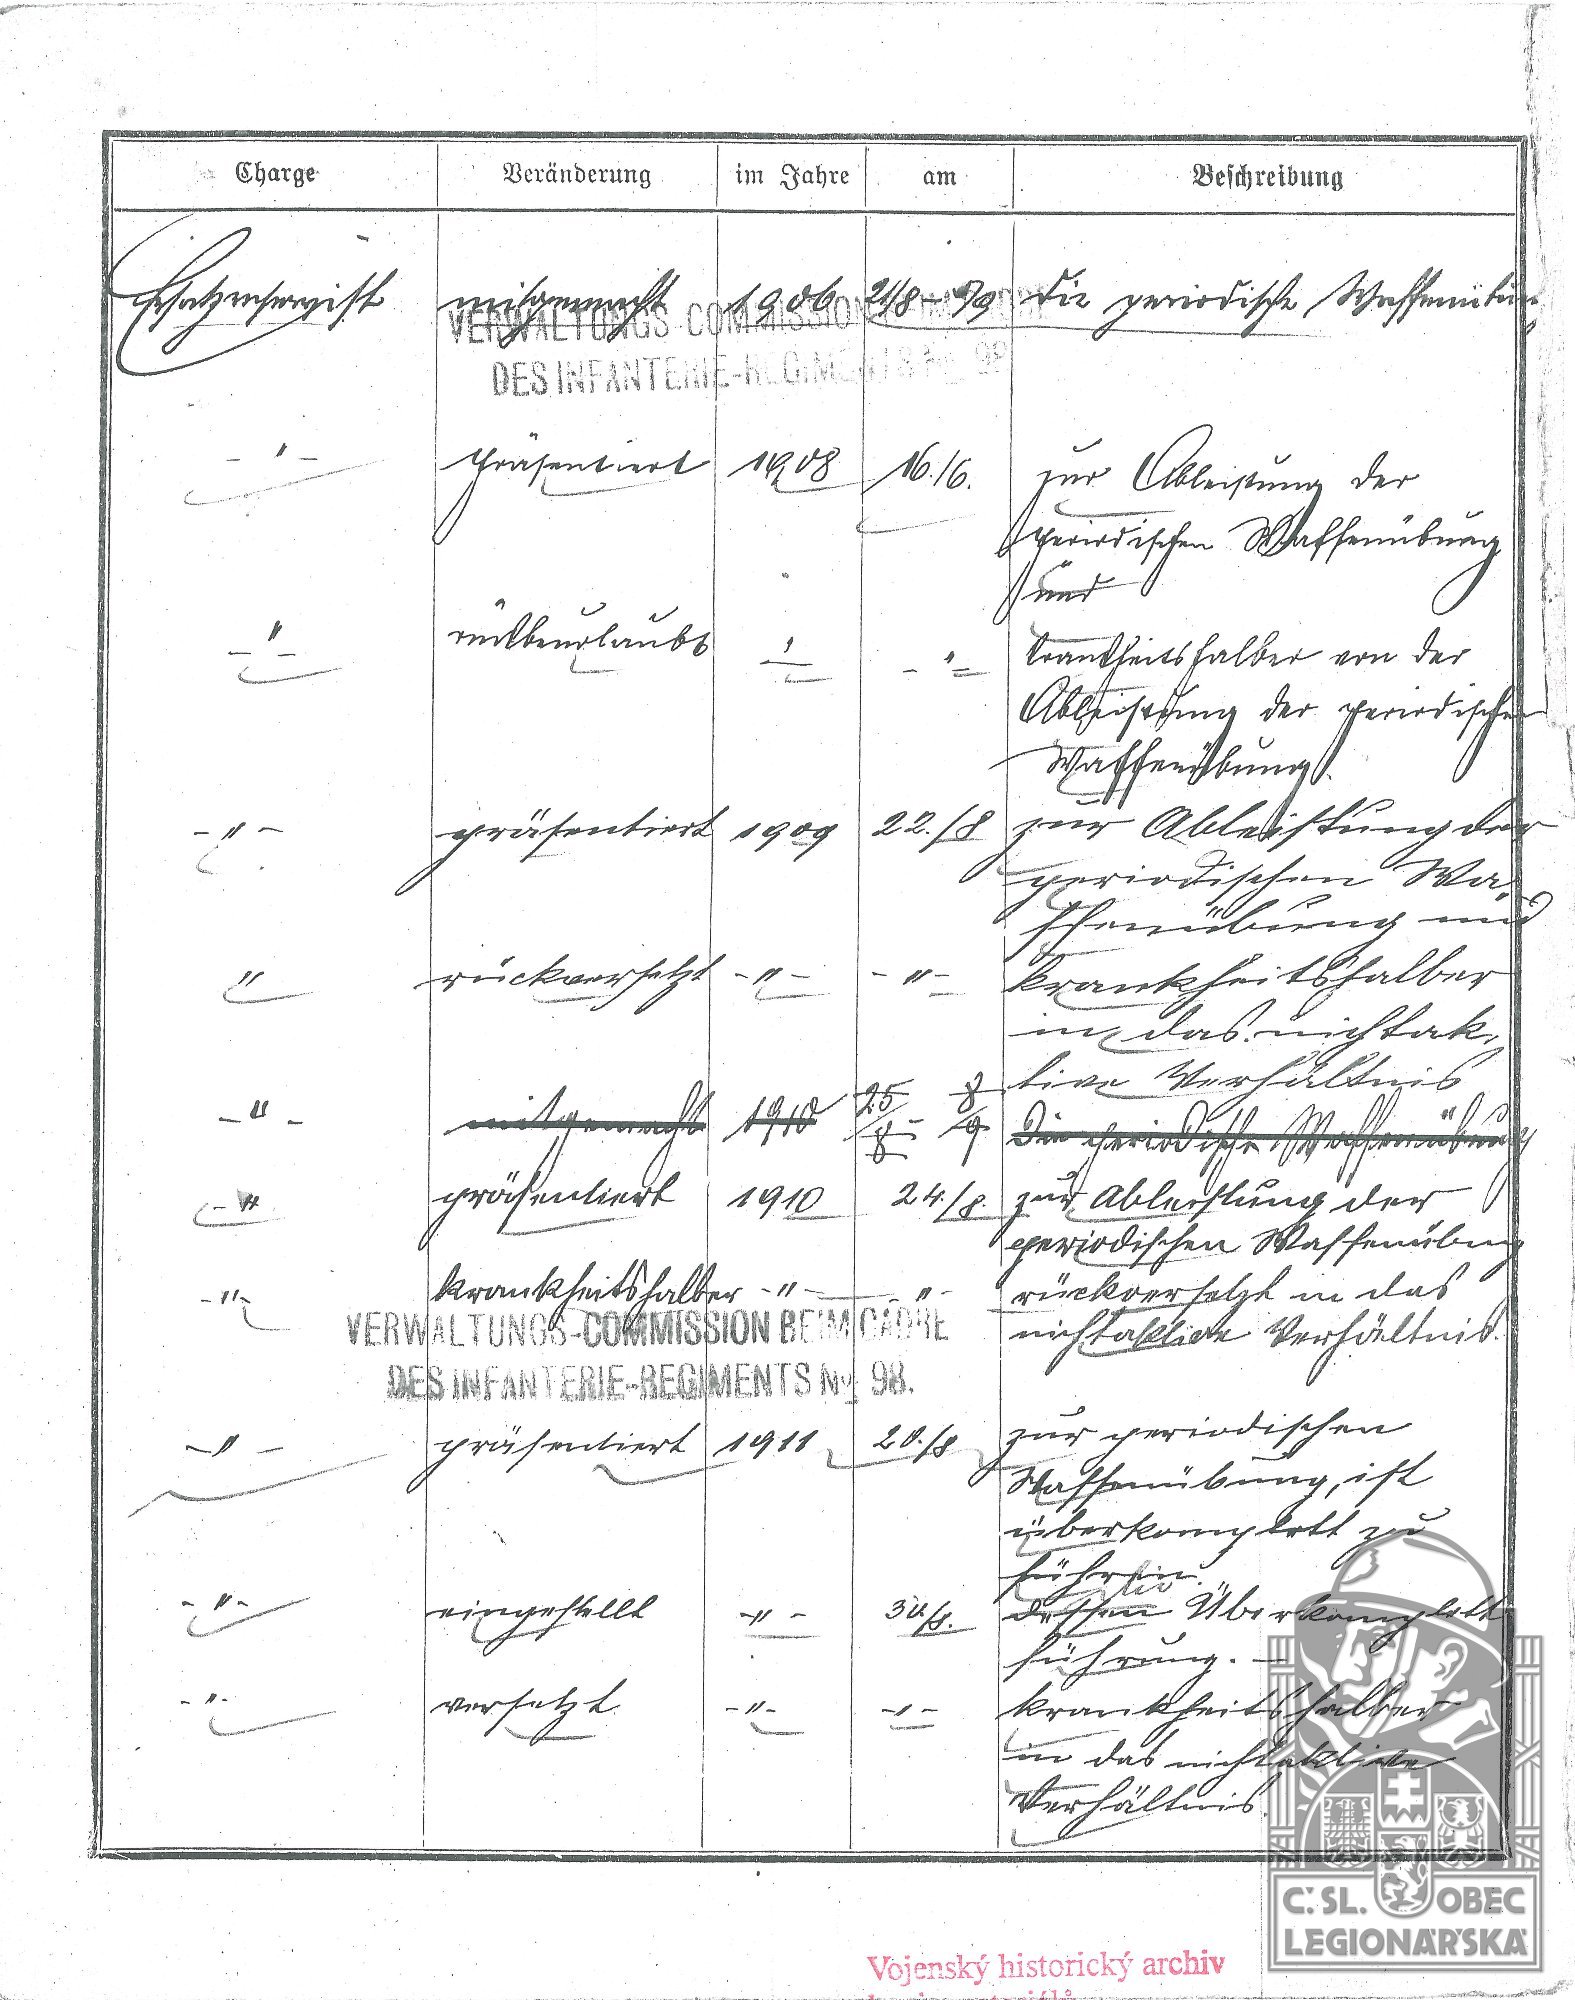 Charge Veränderung im Jahre am Beschreibung
Ersatzreservist mitgemacht 1906 21/8 – 3/9 die periodische Waffenübung
VERWALTUNGS-COMMISSION
DES INFANTERIE-REGIMENTS No 98
-"- präsentiert 1908 16./6. zur Ableistung der
periodischen Waffenübung
und
-"- rückbeurlaubt " -"- krankheitshalber von der
Ableistung der periodischen
Waffenübung.
-"- präsentiert 1909 22./8 zur Ableistung der
periodischen Wa-
ffenübung und
" rückversetzt -"- -"- krankheitshalber
in das nichtak-
tive Verhältnis
-"- mitgemacht 1910 25/8 – 8/9 Die periodische Waffenübung
-"- präsentiert 1910 24./8. zur Ableistung der
periodischen Waffenübung
-"- krankheitshalber -"- -"- rückversetzt in das
nichtaktive Verhältnis.
VERWALTUNGS-COMMISSION BEIM CADRE
DES INFANTERIE-REGIMENTS No 98.
-"- präsentiert 1911 20./8 zur periodischen
Waffenübung, ist
überkomplett zu
führen.
-"- eingestellt -"- 30./8. dessen die Überkomplett
führung. —
-"- versetzt -"- -"- krankheitshalber
in das nichtaktive
Verhältnis.
Č.SL. OBEC
LEGIONÁŘSKÁ
Vojenský historický archiv